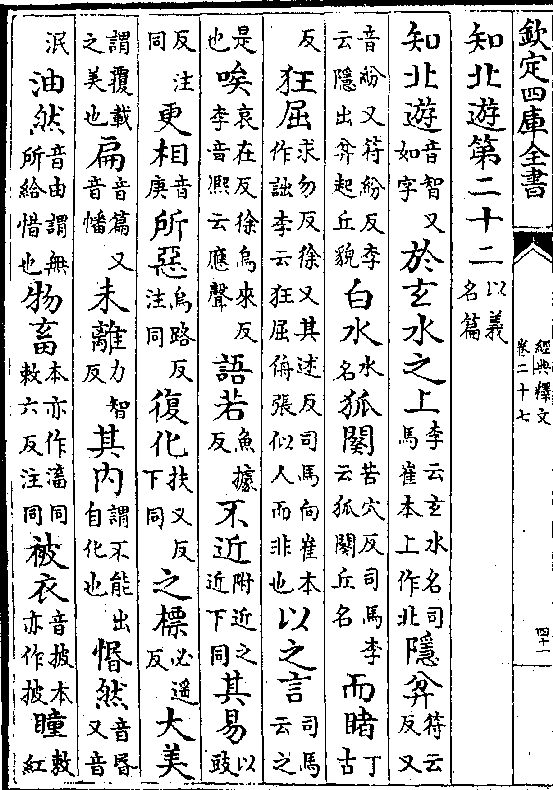 欽定四庫全書
經典釋文
卷二十七
四十一
知北遊第二十二以義名篇
知北遊音智又如字於玄水之上李云玄水名司馬崔本上作北隱弅符云反又
音紛又符紛反李云隱出弅起丘貌白水水名狐闋苦穴反司馬李云狐闋丘名而睹丁古
反狂屈求勿反徐又其述反司馬向崔本作詘李云狂屈侜張似人而非也以之言司馬云之
是也唉哀在反徐烏來反李音熙云應聲語若魚據反不近附近之近下同其易以豉
反注同更相音庚所惡烏路反注同復化扶又反下同之標必遙反大美
謂覆載之美也扁音篇又音幡未離力智反其內謂不能出自化也惛然音昏又音
泯油然音由謂無所給惜也物畜本亦作滀同敕六反注同被衣音披本亦作披瞳敕紅